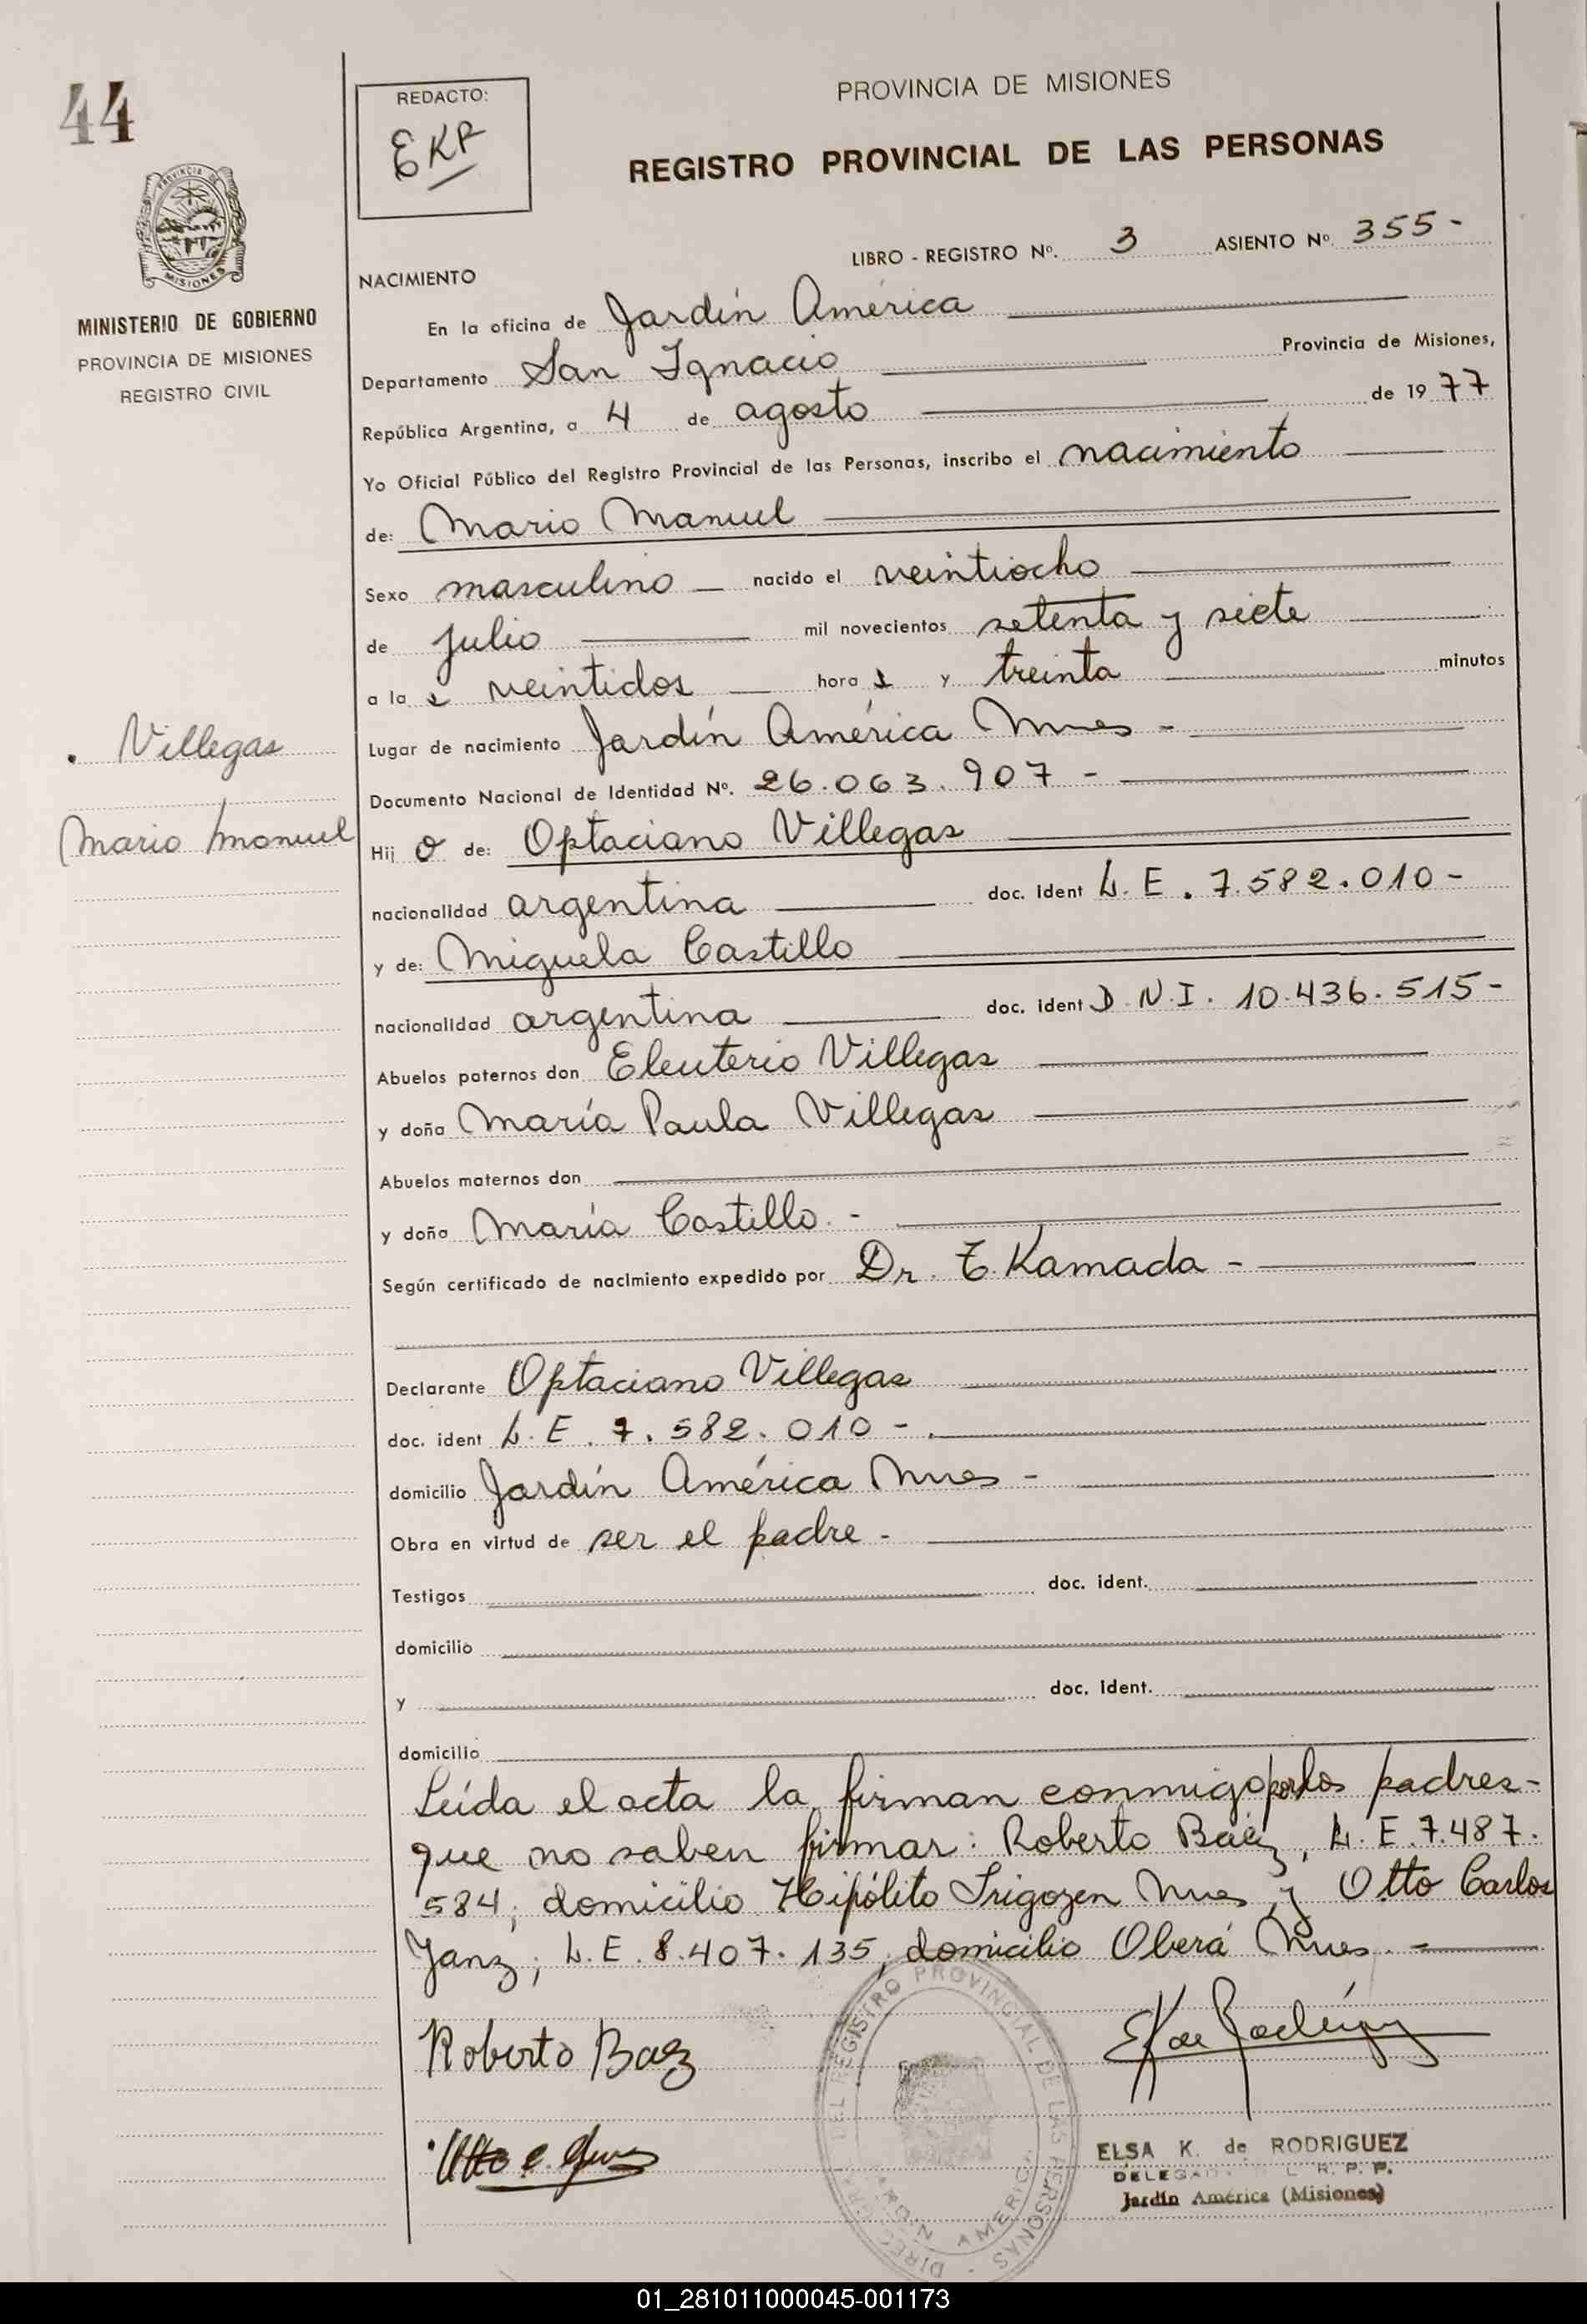 44
REDACTO:
EKR
PROVINCIA DE MISIONES
REGISTRO PROVINCIAL DE LAS PERSONAS
PROVINCIA DE
MISIONES
MINISTERIO DE GOBIERNO
PROVINCIA DE MISIONES
REGISTRO CIVIL
LIBRO - REGISTRO Nº. 3 ASIENTO Nº 355-
NACIMIENTO
En la oficina de Jardín América
Departamento San Ignacio Provincia de Misiones,
República Argentina, a 4 de agosto de 1977
Yo Oficial Público del Registro Provincial de las Personas, inscribo el nacimiento
de: Mario Manuel
Sexo masculino nacido el veintiocho
de julio mil novecientos setenta y siete
a la s veintidos hora s y treinta minutos
Villegas
Mario Manuel
Lugar de nacimiento Jardín América Mnes -
Documento Nacional de Identidad Nº. 26.063.907 -
Hij o de: Optaciano Villegas
nacionalidad argentina doc. ident L. E. 7.582.010-
y de: Miguela Castillo
nacionalidad argentina doc. ident D.N.I. 10.436.515-
Abuelos paternos don Eleuterio Villegas
y doña María Paula Villegas
Abuelos maternos don
y doña María Castillo. -
Según certificado de nacimiento expedido por Dr. T. Kamada -
Declarante Optaciano Villegas
doc. ident L. E. 7.582.010 -
domicilio Jardín América Mnes -
Obra en virtud de ser el padre -
Testigos doc. ident.
domicilio
y doc. ident.
domicilio
Leída el acta la firman conmigo por los padres-
que no saben firmar: Roberto Baéz, L. E. 7.487.
584; domicilio Hipólito Irigoyen Mnes y Otto Carlos
Janz; L. E. 8.407.135; domicilio Oberá Mnes. -
Roberto Baez
EK de Rodríguez
Otto C. Janz
DEL REGISTRO PROVINCIAL DE LAS PERSONAS
AMERICA
ELSA K. de RODRIGUEZ
DELEGADA R. P. P.
Jardín América (Misiones)
01_281011000045-001173